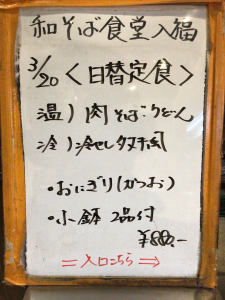 和そば食堂入福
3/20 <日替定食>
温) 肉そばorうどん
冷) 冷せいタヌキ風
・おにぎり(かつお)
・小鉢 2品付
¥880.-
＝入口こちら⇒